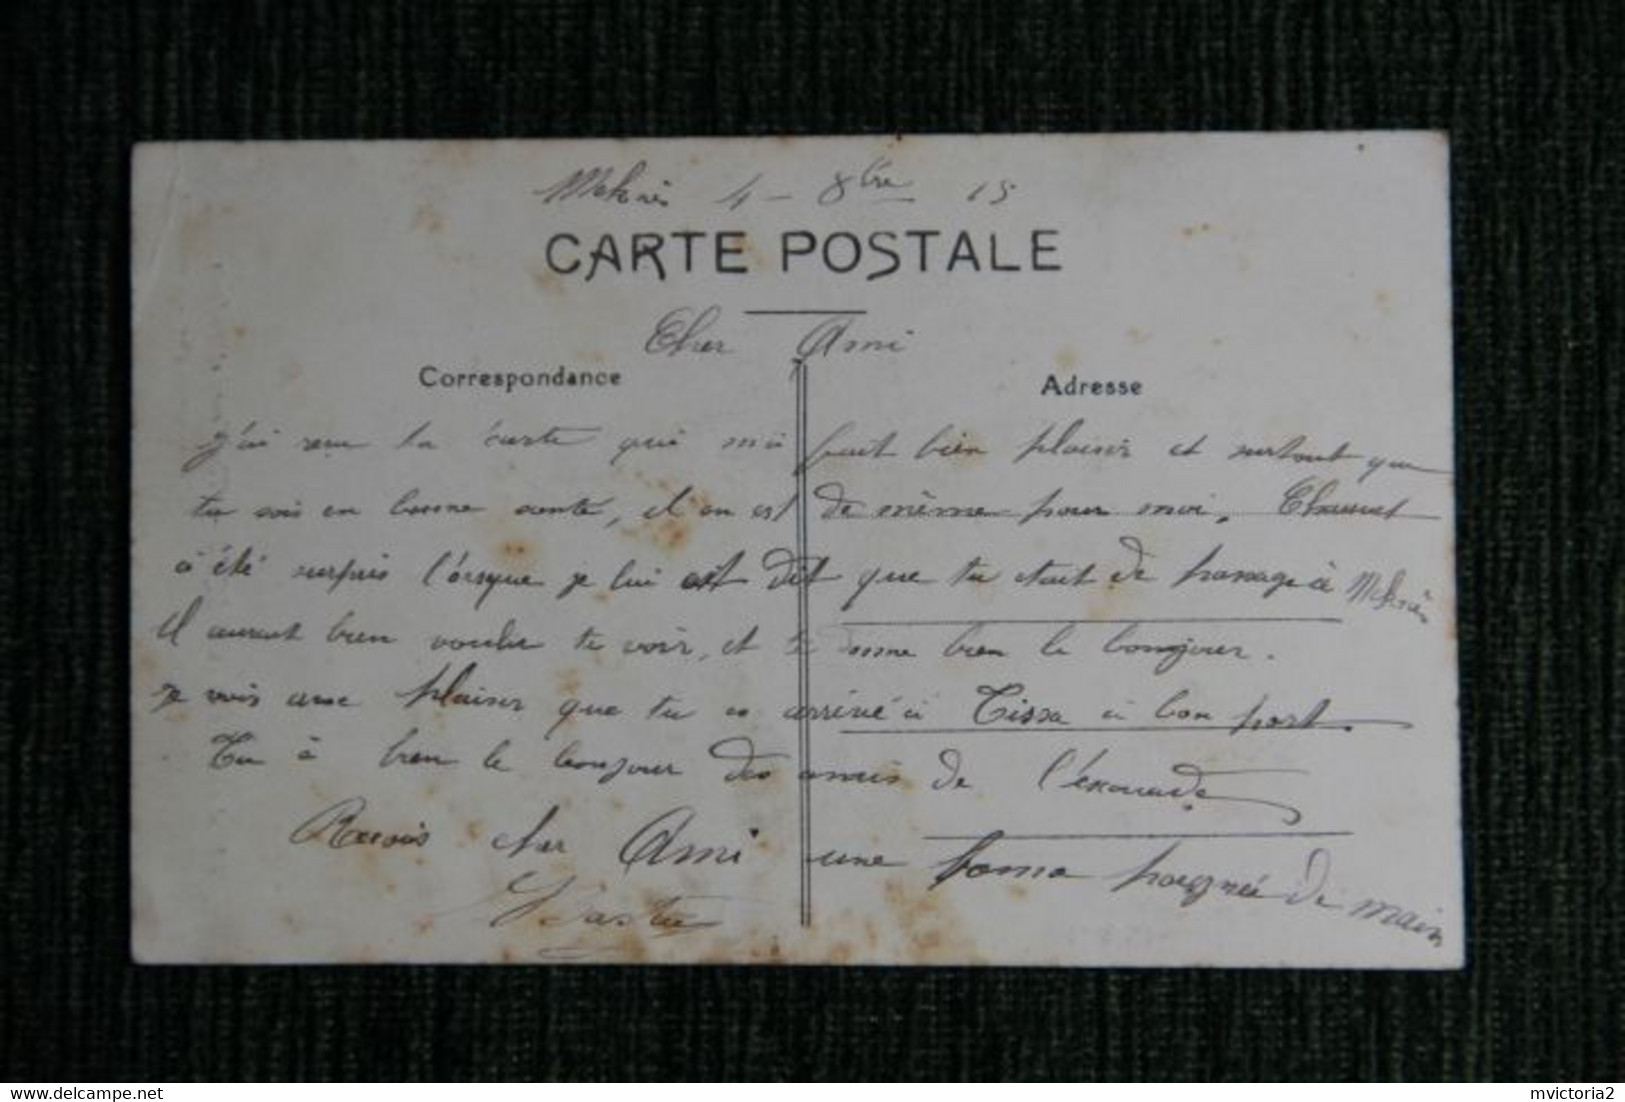 Meknès 4 - 8bre 15
CARTE POSTALE
Cher Ami
Correspondance
Adresse
J'ai recu ta carte qui ma fait bien plaisir et surtout que
tu sois en bonne santé, il en est de même pour moi. Chauvet
à été surpris l'orsque je lui est dit que tu etait de passage à Meknès
Il aurait bien voulu te voir, et te donne bien le bonjour.
Je vois avec plaisir que tu es arrivé à Tissa à bon port.
Tu à bien le bonjour des amis de l'éscouade
Recois cher Ami une bonne poignée de main
mvictoria2